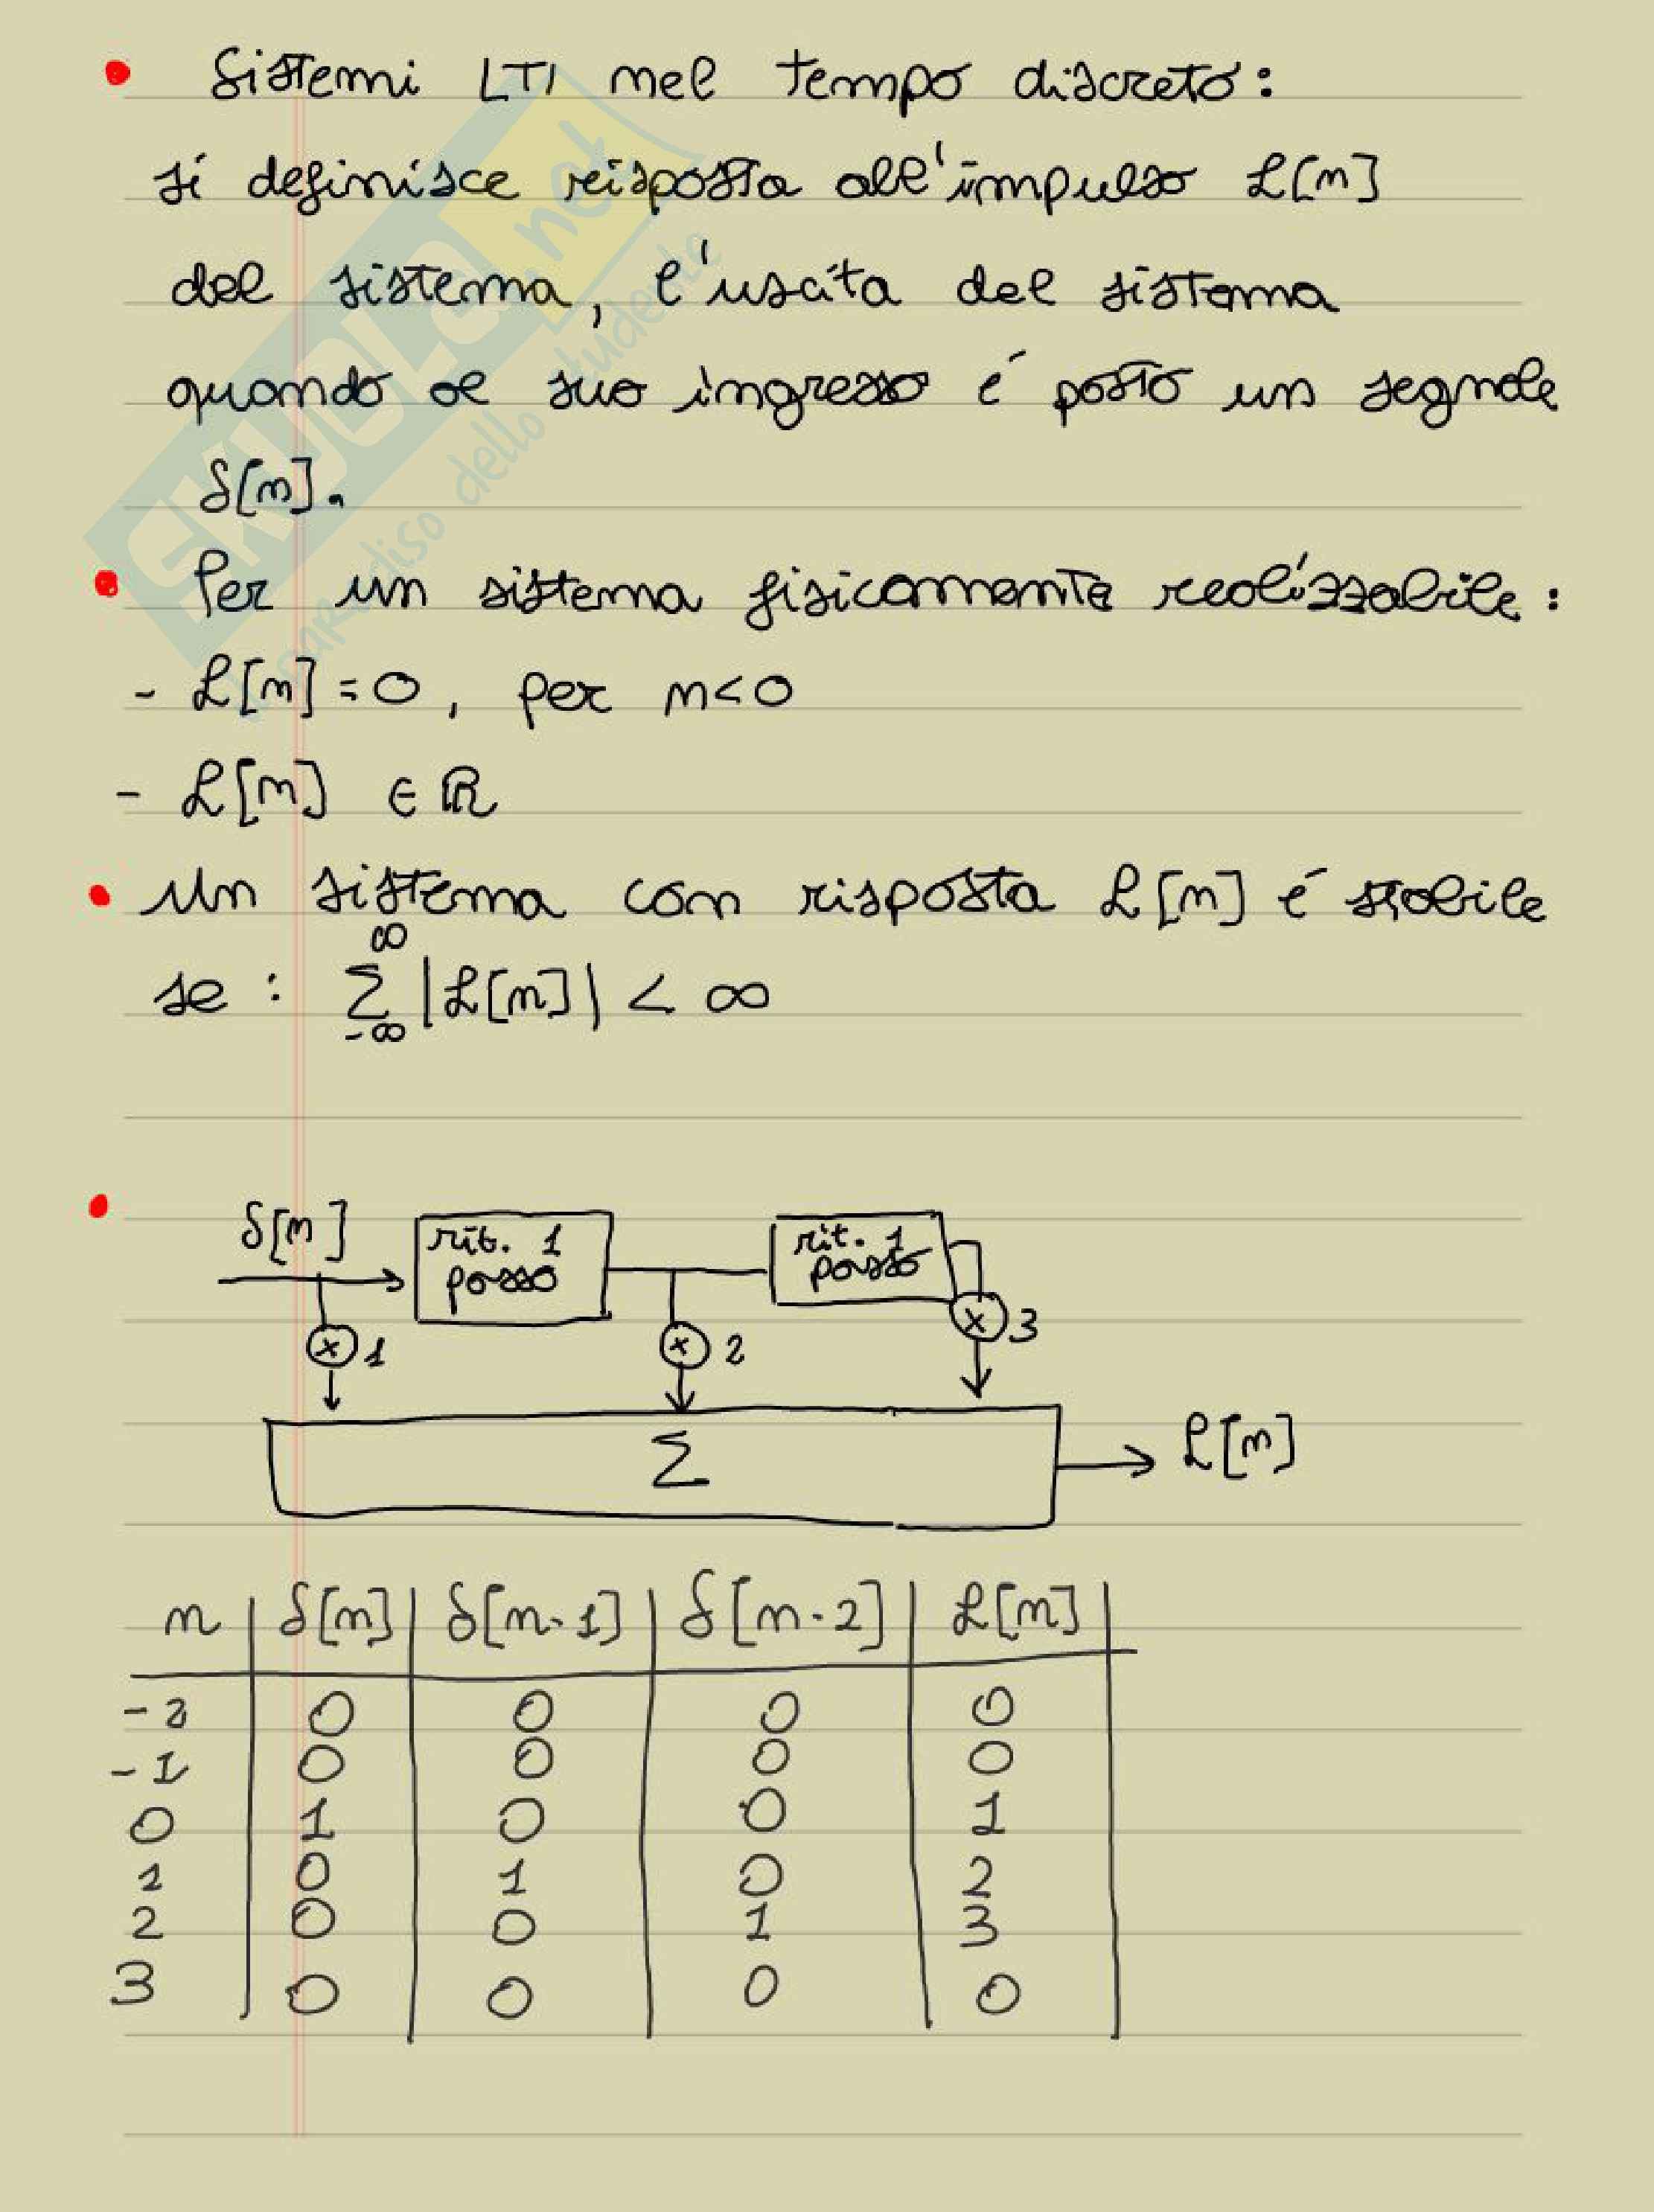 • Sistemi LTI nel tempo discreto:
si definisce risposta all'impulso h[n]
del sistema, l'uscita del sistema
quando al suo ingresso é posto un segnale
δ[n].
• Per un sistema fisicamente realizzabile:
- h[n] = 0, per n<0
- h[n] ∈ ℝ
• Un sistema con risposta h[n] é stabile
se : ∞ Σ -∞ |h[n]| < ∞
• δ[n] rit. 1 rit. 1
passo passo
x 1 x 2 x 3
Σ h[n]
n δ[n] δ[n-1] δ[n-2] h[n]
-2 0 0 0 0
-1 0 0 0 0
0 1 0 0 1
1 0 1 0 2
2 0 0 1 3
3 0 0 0 0
SKUOLA.net
paradiso dello studente